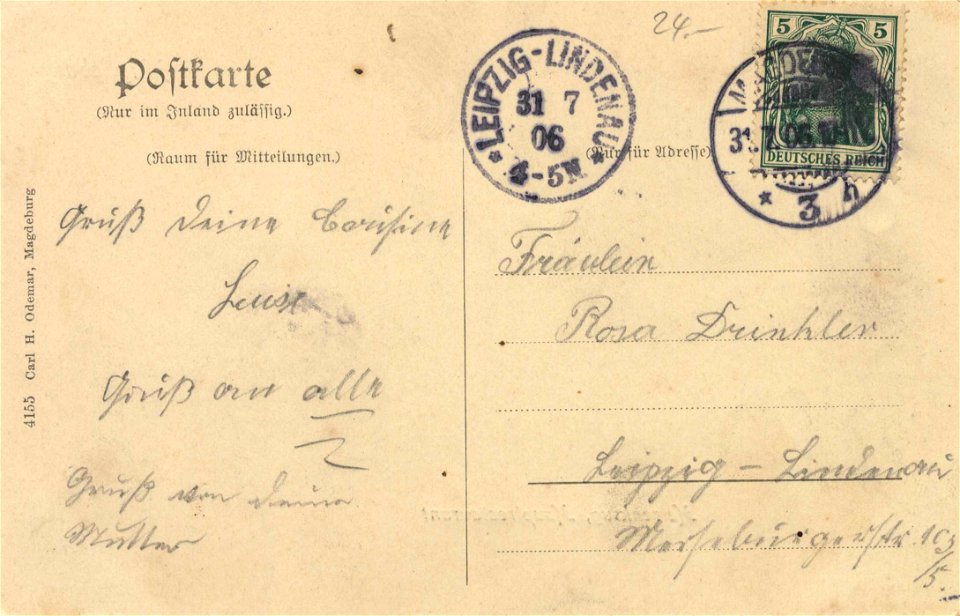 24.-
5 5
DEUTSCHES REICH
LEIPZIG-LINDENAU
31 7
06
4-5N
31.7.06
* 3 h
Postkarte
(Nur im Inland zulässig.)
(Raum für Mitteilungen.)
(Nur für Adresse)
4155 Carl H. Odemar, Magdeburg
Gruß deine Cousine
Luise
Gruß an alle
Gruß von deiner
Mutter
Fräulein
Rosa Drinkler
Leipzig - Lindenau
Merseburgerstr 103
/5.